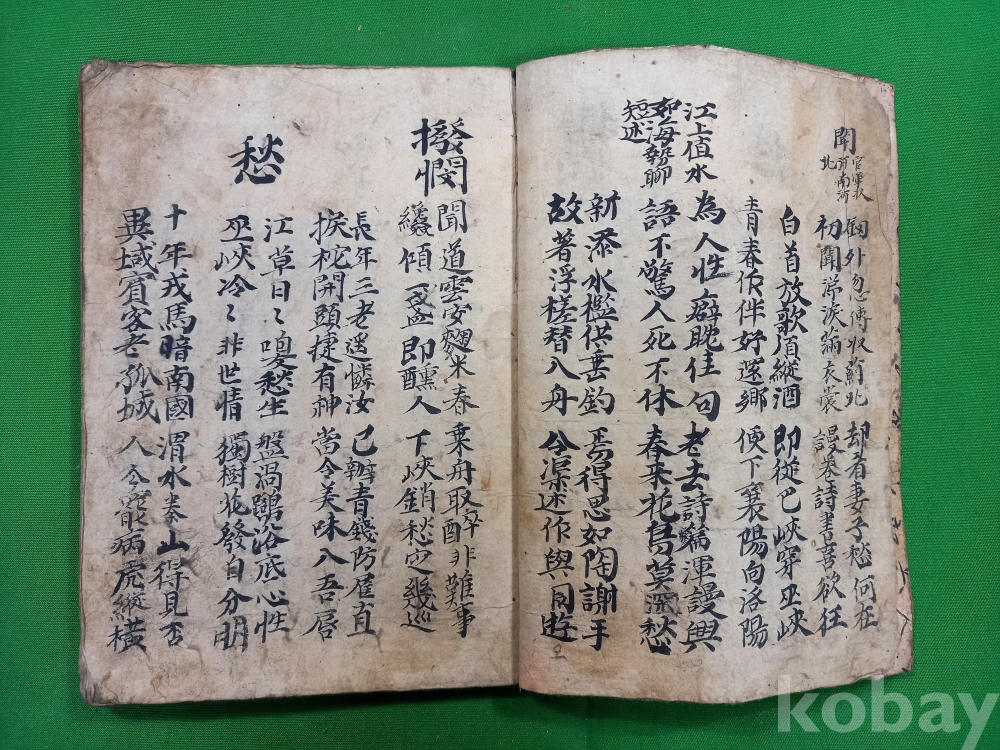 聞官軍收
南河
北
劒外忽傳收薊北 却看妻子愁何在
初聞涕淚滿衣裳 謾卷詩書喜欲狂
白首放歌須縱酒 即從巴峽穿巫峽
青春作伴好還鄕 便下襄陽向洛陽
江上值水
如海勢聊
短述
為人性癖耽佳句 老去詩篇渾謾興
語不驚人死不休 春来花鳥莫深愁
新添水檻供垂釣 焉得思如陶謝手
故著浮槎替入舟 令渠述作與同遊
撥悶
聞道雲安麯米春 乘舟取醉非難事
纔傾一盞即醺人 下峽銷愁定幾巡
長年三老遙憐汝 已辦青錢防雇直
捩柁開頭捷有神 當令美味入吾唇
愁
江草日〻喚愁生 盤渦鷺浴底心性
巫峽冷〻非世情 獨樹花發自分明
十年戎馬暗南國 渭水秦山得見否
異域賓客老孤城 人今罷病虎縱橫
kobay